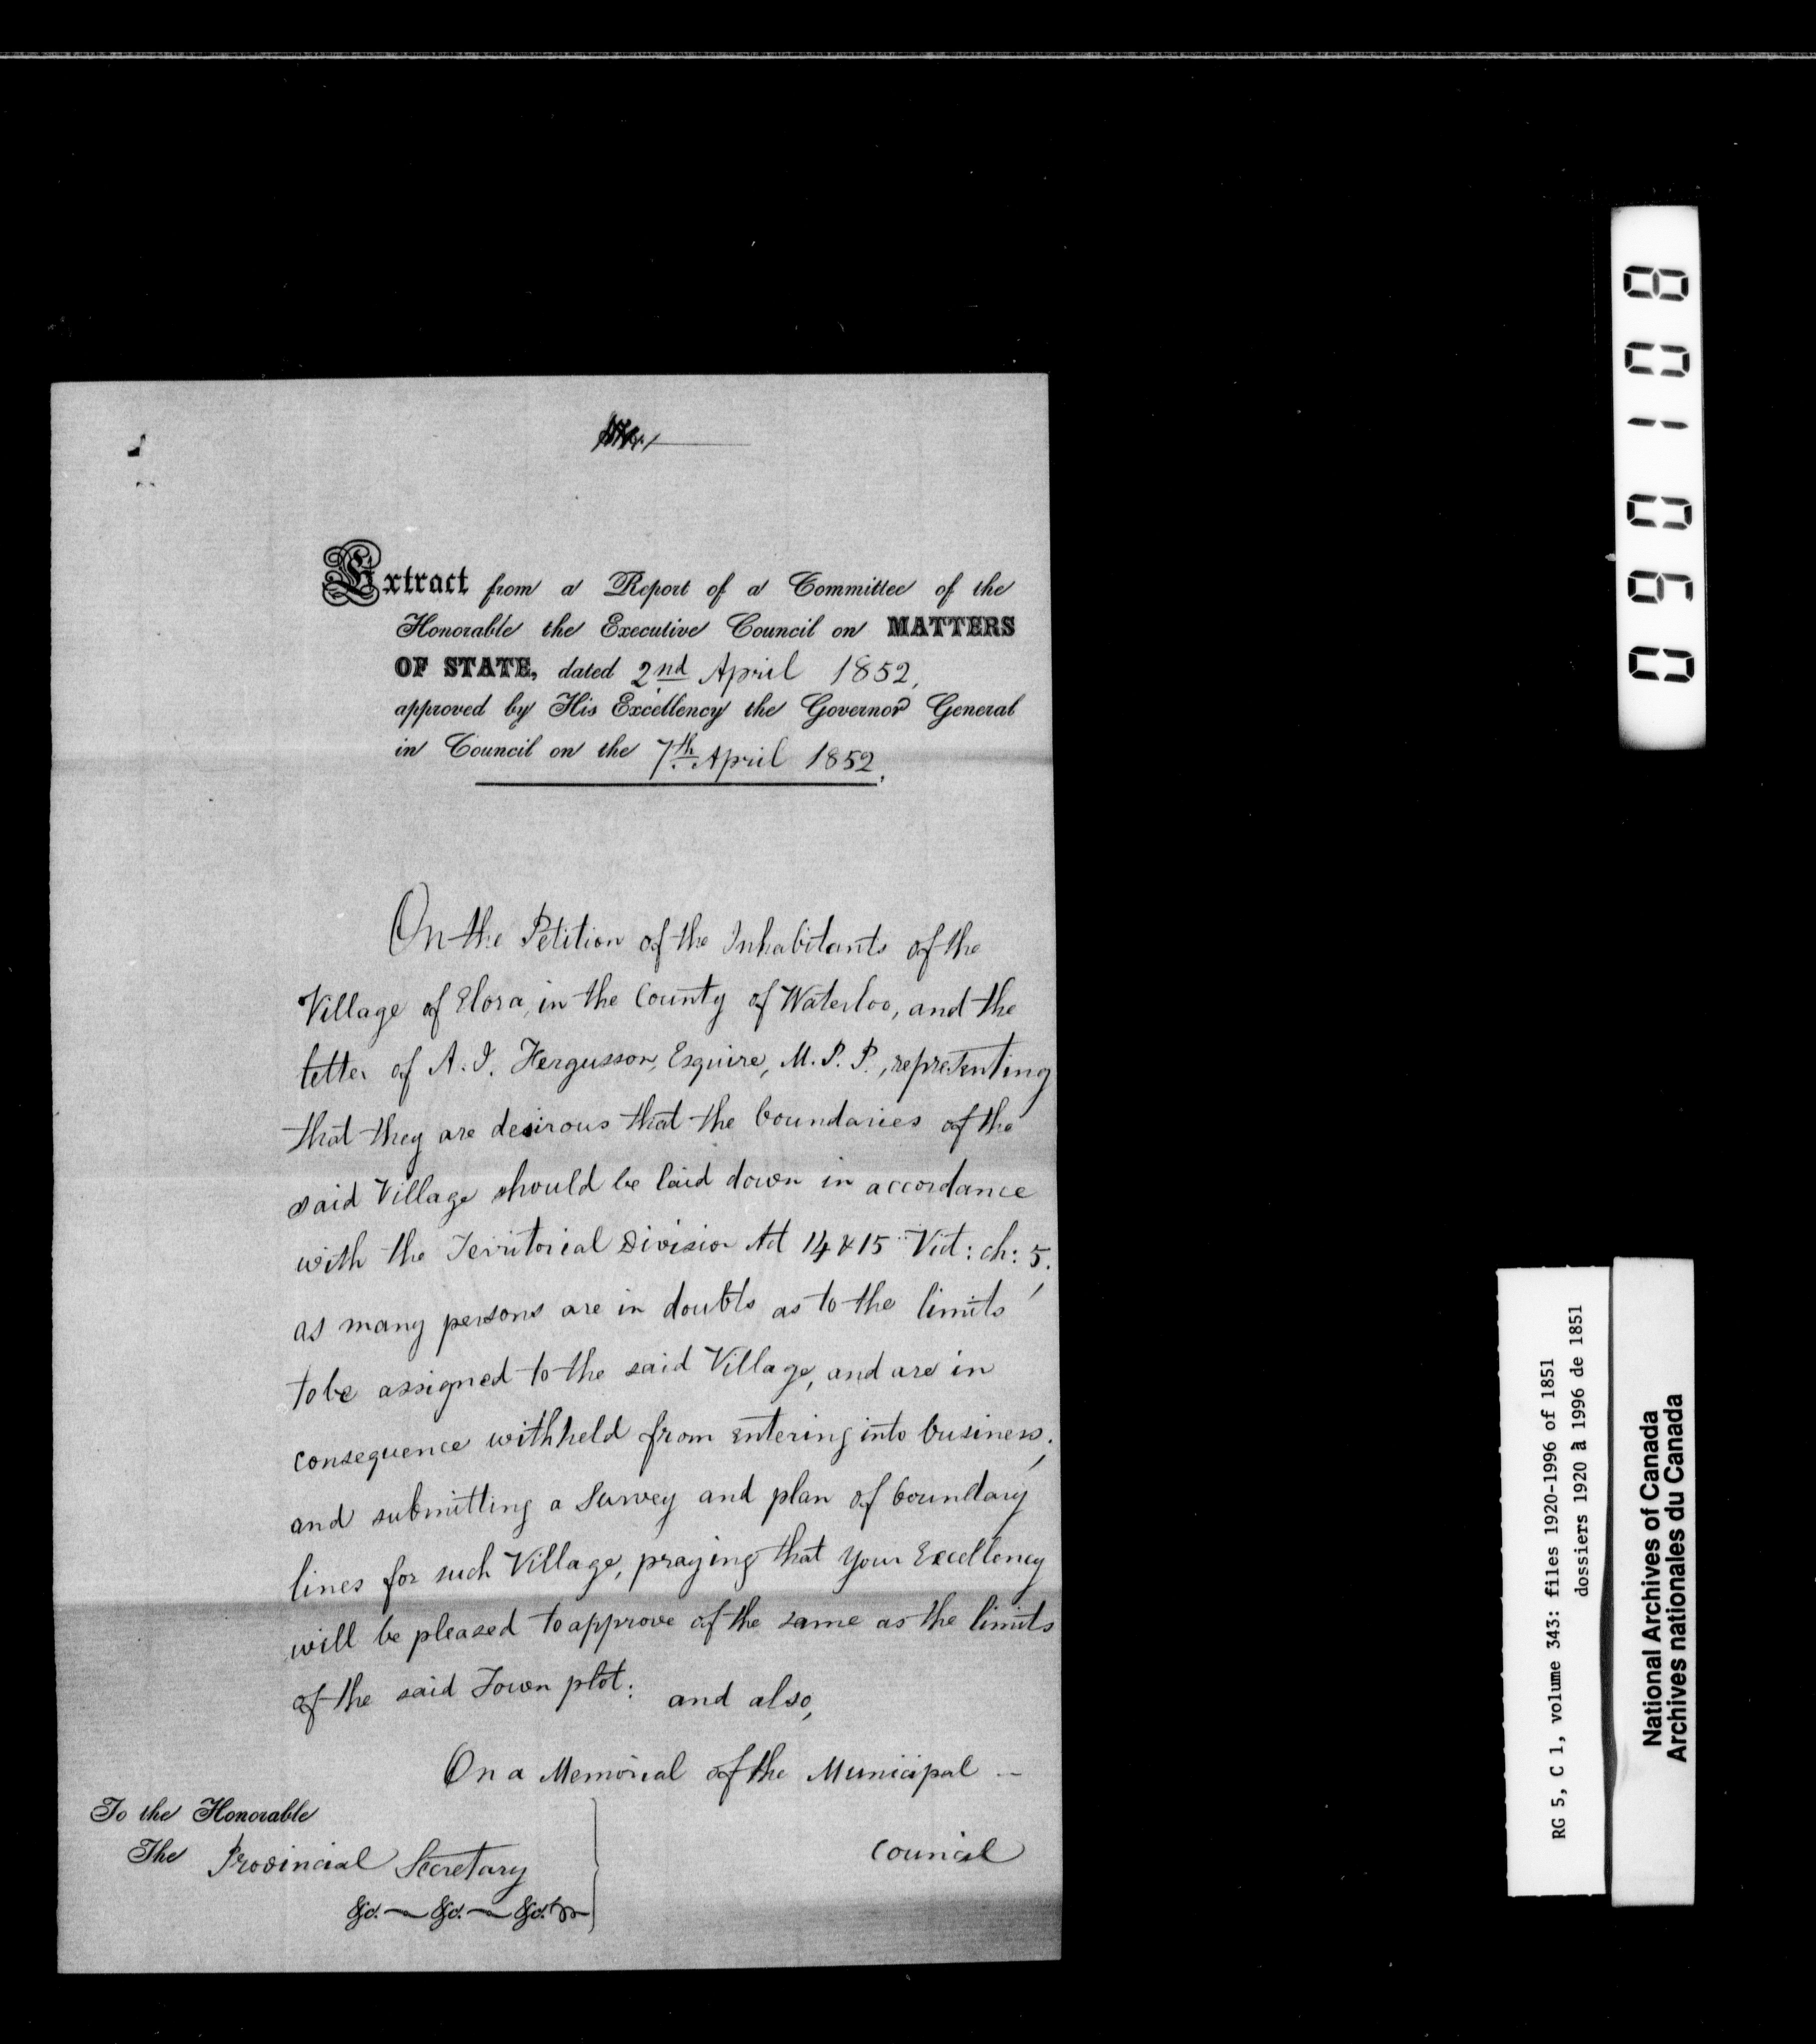 Extract from a Report of a Committee of the
Honorable the Executive Council on MATTERS
OF STATE, dated 2nd April 1852,
approved by His Excellency the Governor General
in Council on the 7th April 1852.
On the Petition of the Inhabitants of the
Village of Elora, in the County of Waterloo, and the
letter of A. J. Fergusson, Esquire, M. P. P., representing
that they are desirous that the boundaries of the
said Village should be laid down in accordance
with the Territorial Division Act 14 & 15 Vict: ch: 5,
as many persons are in doubts as to the limits
to be assigned to the said Village, and are in
consequence withheld from entering into business;
and submitting a Survey and plan of boundary
lines for such Village, praying that Your Excellency
will be pleased to approve of the same as the limits
of the said Town plot: and also,
On a Memorial of the Municipal
Council
To the Honorable
The Provincial Secretary
&c. &c. &c.
090108
RG 5, C 1, volume 343: files 1920-1996 of 1851
dossiers 1920 à 1996 de 1851
National Archives of Canada
Archives nationales du Canada